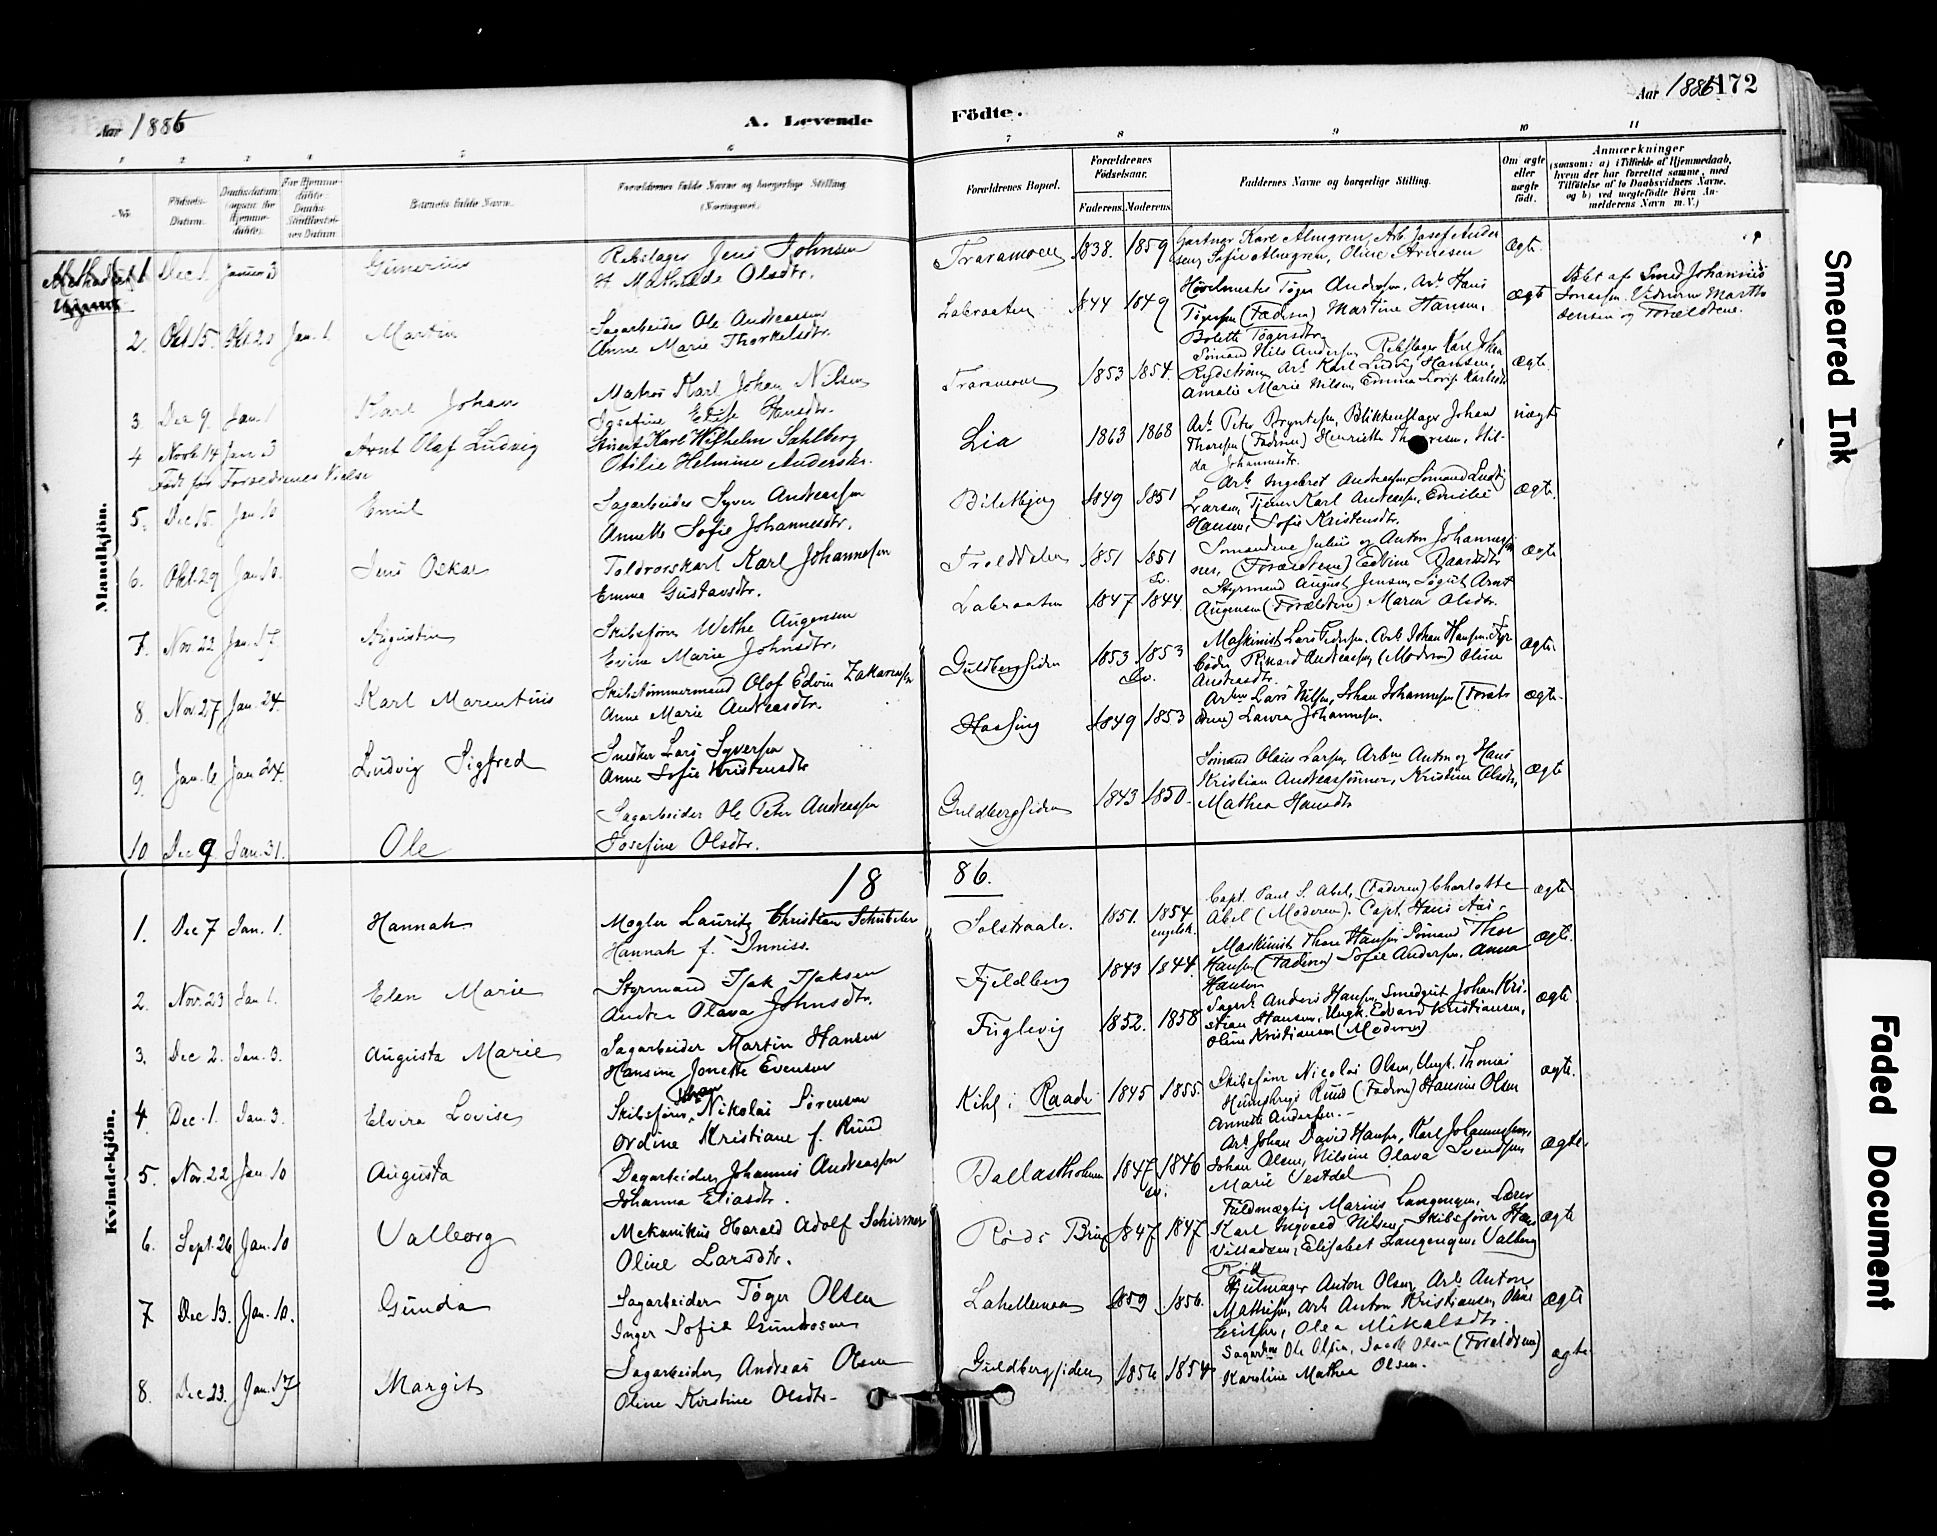 Aar 1886
A. Levende
Födte.
Aar 1886.
172
1 2 3 4 5 6 7 8 9 10 11
No.
Fødsels-Datum.
Barnets fulde Navn.
Forældrenes fulde Navne og borgerlige Stilling
(Næringsvei).
Forældrenes Bopæl.
Forældrenes Fødselsaar.
Faderens. Moderens.
Faddernes Navne og borgerlige Stilling.
Om ægte eller uægte født.
Anmærkninger
(saasom: a) i Tilfælde af Hjemmedaab,
hvem der har forrettet samme, med
Tilføielse af to Daabsvidners Navne,
og b) ved uægtefødte Børn An-
melderens Navn m. V.)
Mandkjön.
1 Dec 1. Januar 3 Gunerius
Rebslager Jens Johnsen
H Mathilde Olsdtr.
Traramoen 1838. 1859
Gartner Karl Almgren, Arb. Josef Ander
sen, Sofie Almgren, Oline Arnesen
ægte
2. Okt 15. Jan. 1. Martin
Sagarbeider Ole Andreassen
Anne Marie Thorkelsdtr.
Labraaten 1844 1849
Høvelmester Tøger Andersen, Arb. Hans
Tøgersen (Fadren) Martine Hansen,
Bolette Tøgersdtr.
ægte
Døbt af Smed Johannes
Jonassen. Vidnerne Marthe
Jensen og Forældrene.
3. Dec 9. Jan. 1 Karl Johan
Matros Karl Johan Nilsen
Josefine Elise Hansdtr.
Traramoen 1853 1854.
Sømand Nils Andersen, Rebslager Karl Joha
Rydstrøm, Arb. Karl Ludvig Hansen,
Amalie Marie Nilsen, Emma Lovise Karlsdtr
ægte.
4 Novb. 14 Jan 3 Arnt Olaf Ludvig
Født før Forældrenes Vielse
Karl Wilhelm Sahlberg
Otilie Helmine Andersdr.
Lia 1863 1868
Arb. Peter Bryntesen, Blikkenslager Johan
Thoresen (Fadren) Henriette Thoresen, Hil-
da Johannesdtr.
uægte
5. Dec 15. Jan 10 Emil
Sagarbeider Syver Andreassen
Annette Sofie Johannesdtr.
1849 1851
Arb. Ingebret Andreassen, Sømand Ludvig
Larsen, Tjener Karl Andreassen, Emilie
Hansen, Sofie Kristensdtr.
ægte.
6. Okt. 29 Jan 10. Jens Oskar
Toldrorskarl Karl Johannesen
Emma Gustavsdtr.
Trolddalen 1851 1851
Sv.
Sømændene Julius og Anton Johannes
ner, (Forældrene) Edvine Daasdtr
ægte
7. Nov. 22 Jan. 17. Augustin
Skibsfører Wethe Augensen
Evine Marie Johnsdtr.
Labraaten 1847 1844
Styrmand August Jensen, Arnt
Augensen (Forældrene) Maren Olsdtr.
8. Nov. 27 Jan. 24. Karl Marentius
Skibstømmermand Olof Edvin Zakariassen
Anne Marie Andreasdtr.
Guldbergsiden 1853 1853
Sv.
Maskinist Lars Pedersen, Arb. Johan Hansen, Fyr
bøder Rikard Andreassen (Modren) Oline
Andreasdtr.
ægte.
9. Jan. 6 Jan 24. Ludvig Sigfred
Snedker Lars Syversen
Anne Sofie Kristensdtr
1849 1853
Arb. Lars Nilsen, Johan Johannessen (Foræl
drene) Laura Johannesen.
ægte.
10 Dec 9 Jan. 31. Ole
Sagarbeider Ole Peter Andreassen
Josefine Olsdtr.
Guldbergsiden 1843 1850.
Sømand Olaus Larsen, Arb. Anton og Hans
Kristian Andreassønner, Kristine Olsdtr,
Mathea Hansdtr
ægte
18 86.
Kvindekjön.
1. Dec 7 Jan. 1. Hannah
Megler Lauritz Christian Schübeler
Hannah f. Inniss.
Solstraale. 1851. 1854
engelsk.
Capt. Paul S. Abel, (Faderen) Charlotte
Abel (Moderen). Capt. Hans Aas.
ægte
2. Nov. 23 Jan 1. Elen Marie
Styrmand Isak Isaksen
Andrea Olava Johnsdtr.
Fjeldberg 1843 1844.
Maskinist Thore Hansen, Sømand Thor
Hansen (Fadren) Sofie Andersen, Anna
Hansen
ægte.
3. Dec 2. Jan. 3. Augusta Marie
Sagarbeider Martin Hansen
Hansine Jonette Evensen
Fuglevig 1852. 1858
Sagarb. Anders Hansen, Smedgut Johan Kri-
stian Hansen, Ungk. Edvard Kristiansen,
Oline Kristiansen (Modren)
ægte
4. Dec. 1. Jan. 3. Elvira Lovise
Skibsfører Nikolai Sørensen
Ordine Kristiane f. Ruud
Kihl i Raade 1845 1855.
Skibsfører Nicolai Olsen, Ungk. Thomas
Humphreys Ruud (Fadren) Hansine Olsen
Annette Andersen.
ægte.
5. Nov. 22 Jan 10 Augusta
Dagarbeider Johannes Andreassen
Johanna Eliasdtr.
Ballastholmen 1847 1846
sv.
Arb. Johan David Hansen, Karl Johannessen,
Johan Olsen, Nilsine Olava Svendsen,
Marie Vestdal
ægte.
6. Sept. 26 Jan. 10 Valborg
Mekanikus Harald Adolf Schirmer
Oline Larsdtr.
Røds Brug 1847 1847
Fuldmægtig Marius Langengen, Lærer
Karl Ingvald Nilsen, Skibsfører Hans
Villadsen, Elisabet Langengen, Valborg
Rød
ægte
7 Dec 13. Jan. 10. Gunda
Sagarbeider Tøger Olsen
Inger Sofie Gundrosen
Lahellemoen 1859 1856.
Hjulmager Anton Olsen, Arb. Anton
Mathisen, Arb. Anton Kristiansen,
Olea Mikalsdtr.
ægte
8. Dec. 23. Jan. 17 Margit
Sagarbeider Andreas Olsen
Oline Kirstine Olsdtr.
Guldbergsiden 1856 1854
Sagarb. Ole Olsen, Jacob Olsen (Forældrene)
Karoline Mathea Olsen.
ægte
Smeared Ink
Faded Document